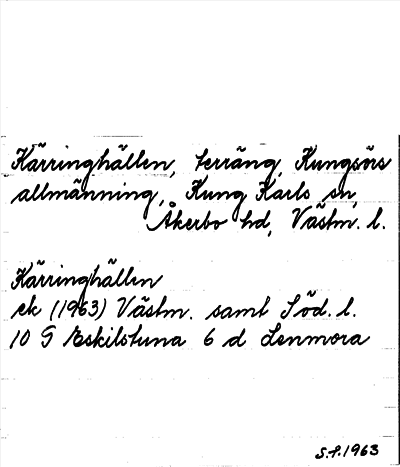 Kärringhällen, terräng, Kungsörs
allmänning, Kung Karls sn,
Åkerbo hd, Västm. l.
Kärringhällen
ek (1963) Västm. samt Söd. l.
10 G Eskilstuna 6 d Lenmora
S.P. 1963